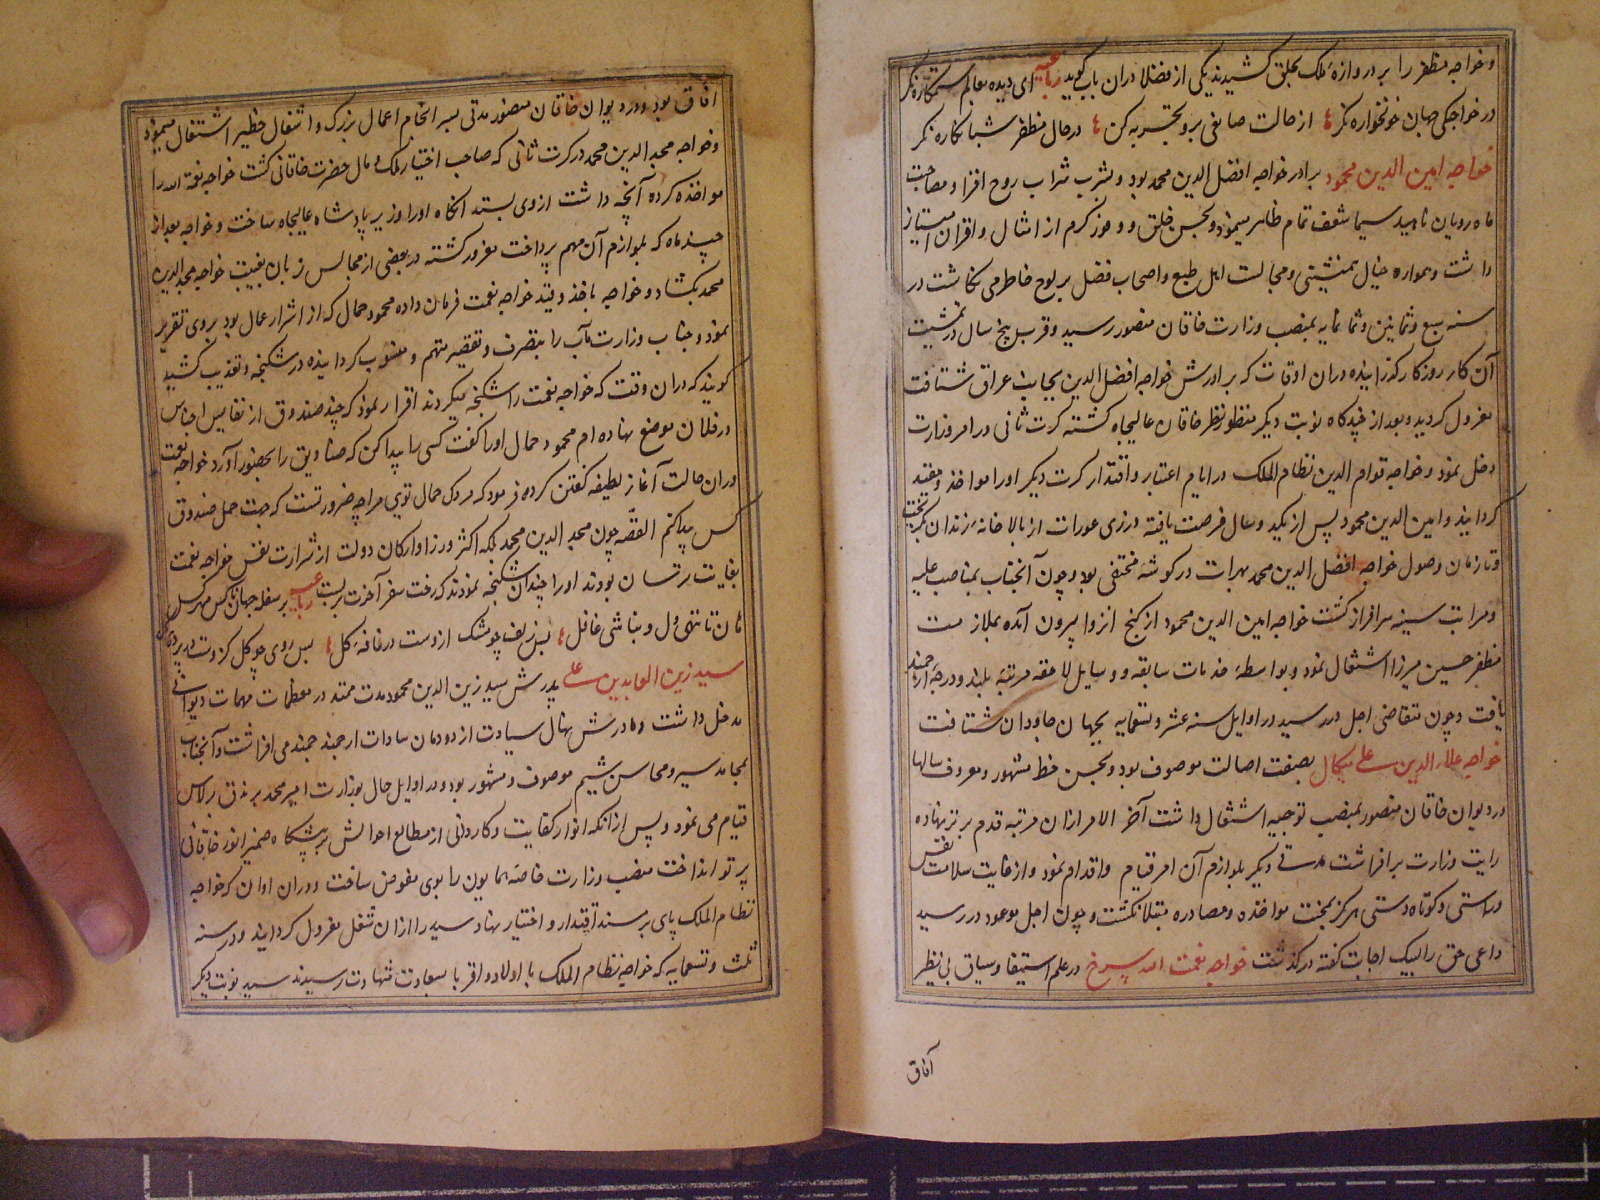 و خواجه مظفر را بر دروازهٔ ملک بحلق کشیدند یکی از فضلا دران باب گوید رباعیه ای دیده بعالم ستمکاره نگر
در خواجکی جهان خونخواره نگر از حالت صایفی برو تجربه کن در حال مظفر شبانکاره نگر
خواجه امین الدین محمود برادر خواجه افضل الدین محمد بود و بشرب شراب روح افزا و مصاحبت
ماه رویان ناهید سیما شعف تمام ظاهر مینمود و بحسن خلق و وفور کرم از امثال و اقران امتیاز
داشت و همواره خیال همنشینی و مجالست اهل طبع و اصحاب فضل بر لوح خاطر می نکاشت در
سنه سبع و ثمانین و ثمانمایه بمنصب وزارت خاقان منصور رسید و قرب پنج سال در تمشیت
آن کار روزکار کذرانیده دران اوقات که برادرش خواجه افضل الدین بجانب عراق شتافت
معزول کردید و بعد از چندکاه نوبت دیکر منظور نظر خاقان عالیجاه کشته کرت ثانی در امر وزارت
دخل نمود و خواجه قوام الدین نظام الملک در ایام اعتبار و اقتدار کرت دیکر او را مواخذ و مقید
کردانید و امین الدین محمود پس از یکدو سال فرصت یافته در زی عورات از بالا خانهٔ زندان بکریخت
و تا زمان وصول خواجه افضل الدین محمد بهرات در کوشه مختفی بود و چون آنجناب بمناصب علیه
و مراتب سنیه سرافراز کشت خواجه امین الدین محمود از کنج انزوا بیرون آمده بملازمت
مظفر حسین میرزا اشتغال نمود و بواسطهٔ خدمات سابقه و وسایل لاحقه مرتبهٔ بلند و درجهٔ ارجمند
یافت و چون متقاضی اجل در رسید در اوایل سنه عشر و تسعمایه بجهان جاودان شتافت
خواجه علاء الدین علی میکال بصفت اصالت موصوف بود و بحسن خط مشهور و معروف سالها
در دیوان خاقان منصور بمنصب توجیه اشتغال داشت آخر الامر ازان مرتبه قدم برتر نهاده
رایت وزارت برافراشت مدتی دیکر بلوازم آن امر قیام و اقدام نمود و از غایت سلامت نفس
و راستی و کوتاه دستی هرکز بمحنت مواخذه و مصادره مبتلا نکشت و چون اجل موعود در رسید
داعی حق را لبیک اجابت کفته درکذشت خواجه نعمت الله سرخ در علم استیفا و سیاق بی نظیر
آفاق
آفاق بود و در دیوان خاقان منصور مدتی بسر انجام اعمال بزرک و اشغال خطیر اشتغال مینمود
و خواجه مجد الدین محمد در کرت ثانی که صاحب اختیار ملک و مال حضرت خاقانی کشت خواجه نعمة الله را
مواخذه کرده آنچه داشت از وی بستد آنکاه او را وزیر پادشاه عالیجاه ساخت و خواجه بعد از
چند ماه که بلوازم آن مهم پرداخت مغرور کشته در بعضی از مجالس زبان بغیبت خواجه مجد الدین
محمد بکشاد و خواجه باخذ و قید خواجه نعمت فرمان داده محمود حمال که از اشرار عمال بود بروی تقریر
نمود و جناب وزارت مآب را بتصرف و تقصیر متهم و منسوب کردانیده در شکنجه و تعذیب کشید
کویند که دران وقت که خواجه نعمت را شکنجه میکردند اقرار نمود که چند صندوق از نفایس اجناس
در فلان موضع نهاده ام محمود حمال او را کفت کسی را پیدا کن که صنادیق را بحضور آورد خواجه نعمت
دران حالت آغاز لطیفه کفتن کرده فرمود که مردک حمال تویی مرا چه ضرورتست که جهت حمل صندوق
کس پیدا کنم القصه چون مجد الدین محمد بلکه اکثر وزرا و ارکان دولت از شرارت نفس خواجه نعمت
بغایت ترسان بودند او را چندان شکنجه نمودند که رخت سفر آخرت بربست رباعیه بر سفله جهان ناکس مهر کسل
هان تا ننهی دل و نباشی غافل بس زلف چو مشک ازوست در نافهٔ کل بس روی چو کل کزوست در پردهٔ کل
سید زین العابدین علی پدرش سید زین الدین محمود مدت ممتد در معظمات مهمات دیوانی
مدخل داشت و مادرش نهال سیادت از دودمان سادات ارجمند جمند می افراشت و آنجناب
بمحامد سیر و محاسن شیم موصوف و مشهور بود و در اوایل حال بوزارت امیر محمد برندق برلاس
قیام می نمود و پس از انکه انوار کفایت و کاردانی از مطالع احوالش بر پیشکاه ضمیر انور خاقانی
پرتو انداخت منصب وزارت خاصه همایون را بوی مفوض ساخت و دران اوان که خواجه
نظام الملک پای بر مسند اقتدار و اختیار نهاد سید را ازان شغل معزول کردانید و در سنه
ثلث و تسعمایه که خواجه نظام الملک با اولاد و اقربا بسعادت شهادت رسیدند سید نوبت دیکر